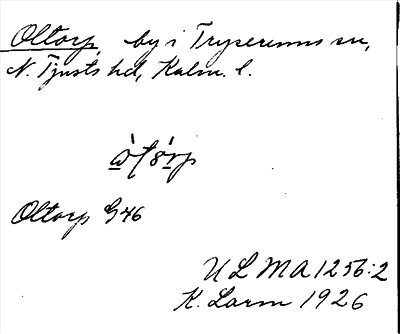 Oltorp, by i Tryserums sn,
N. Tjusts hd, Kalm. l.
Oltorp G46
ULMA 1256:2
K. Larm 1926